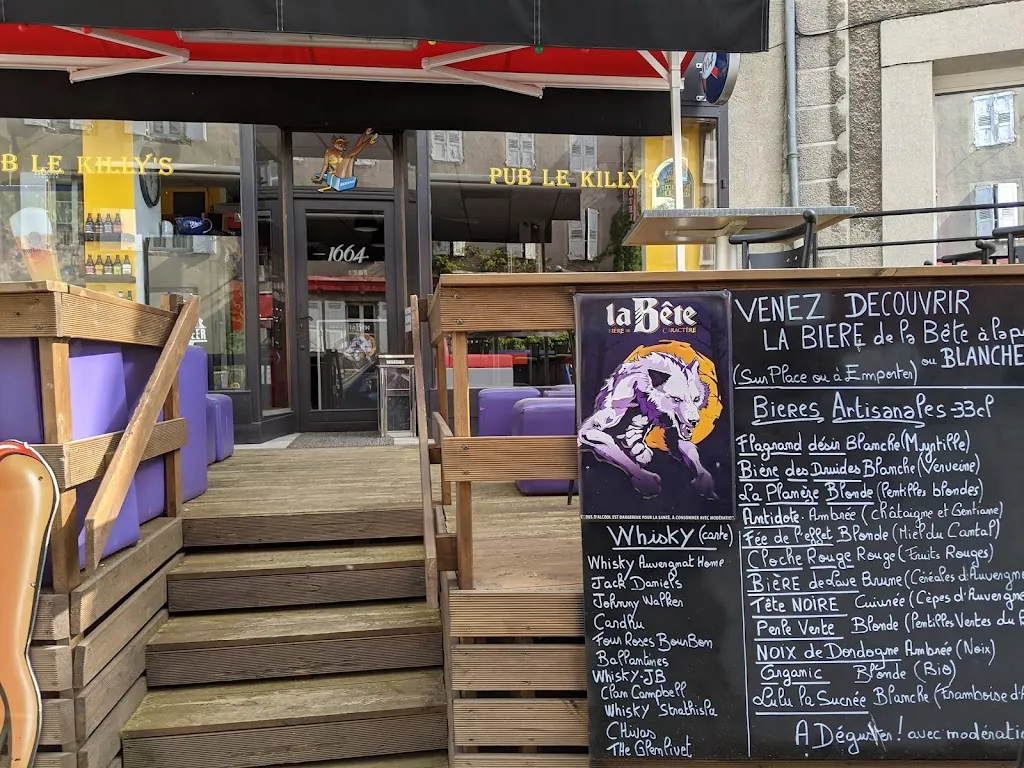 B LE KILLY'S
PUB LE KILLY'S
1664
la Bête
BIÈRE DE CARACTÈRE
VENEZ DECOUVRIR
LA BIERE de la Bête à la
ou BLANCHE
(Sur Place ou à Emporter)
Bieres Artisanales 33cl
Flagrand désir Blanche (Myrtille)
Bière des Druides Blanche (Verveine)
La Planèze Blonde (lentilles blondes)
Antidote Ambrée (châtaigne et Gentiane)
Fée de l'effet Blonde (Miel du Cantal)
Cloche Rouge Rouge (Fruits Rouges)
BIÈRE de Lave Brune (Céréales d'Auvergne
Tête NOIRE Cuivrée (Cèpes d'Auvergne
Perle Verte Blonde (lentilles Vertes du
NOIX de Dordogne Ambrée (Noix)
Organic Blonde (Bio)
Lulu la Sucrée Blanche (Framboise d'A
A Déguster! avec modération
L'ABUS D'ALCOOL EST DANGEREUX POUR LA SANTÉ, À CONSOMMER AVEC MODÉRATION
Whisky (carte)
Whisky Auvergnat Home
Jack Daniel's
Johnny Walker
Cardhu
Four Roses BourBon
Ballantines
Whisky JB
Clan Campbell
Whisky Strathisla
CHivas
THe Glenlivet